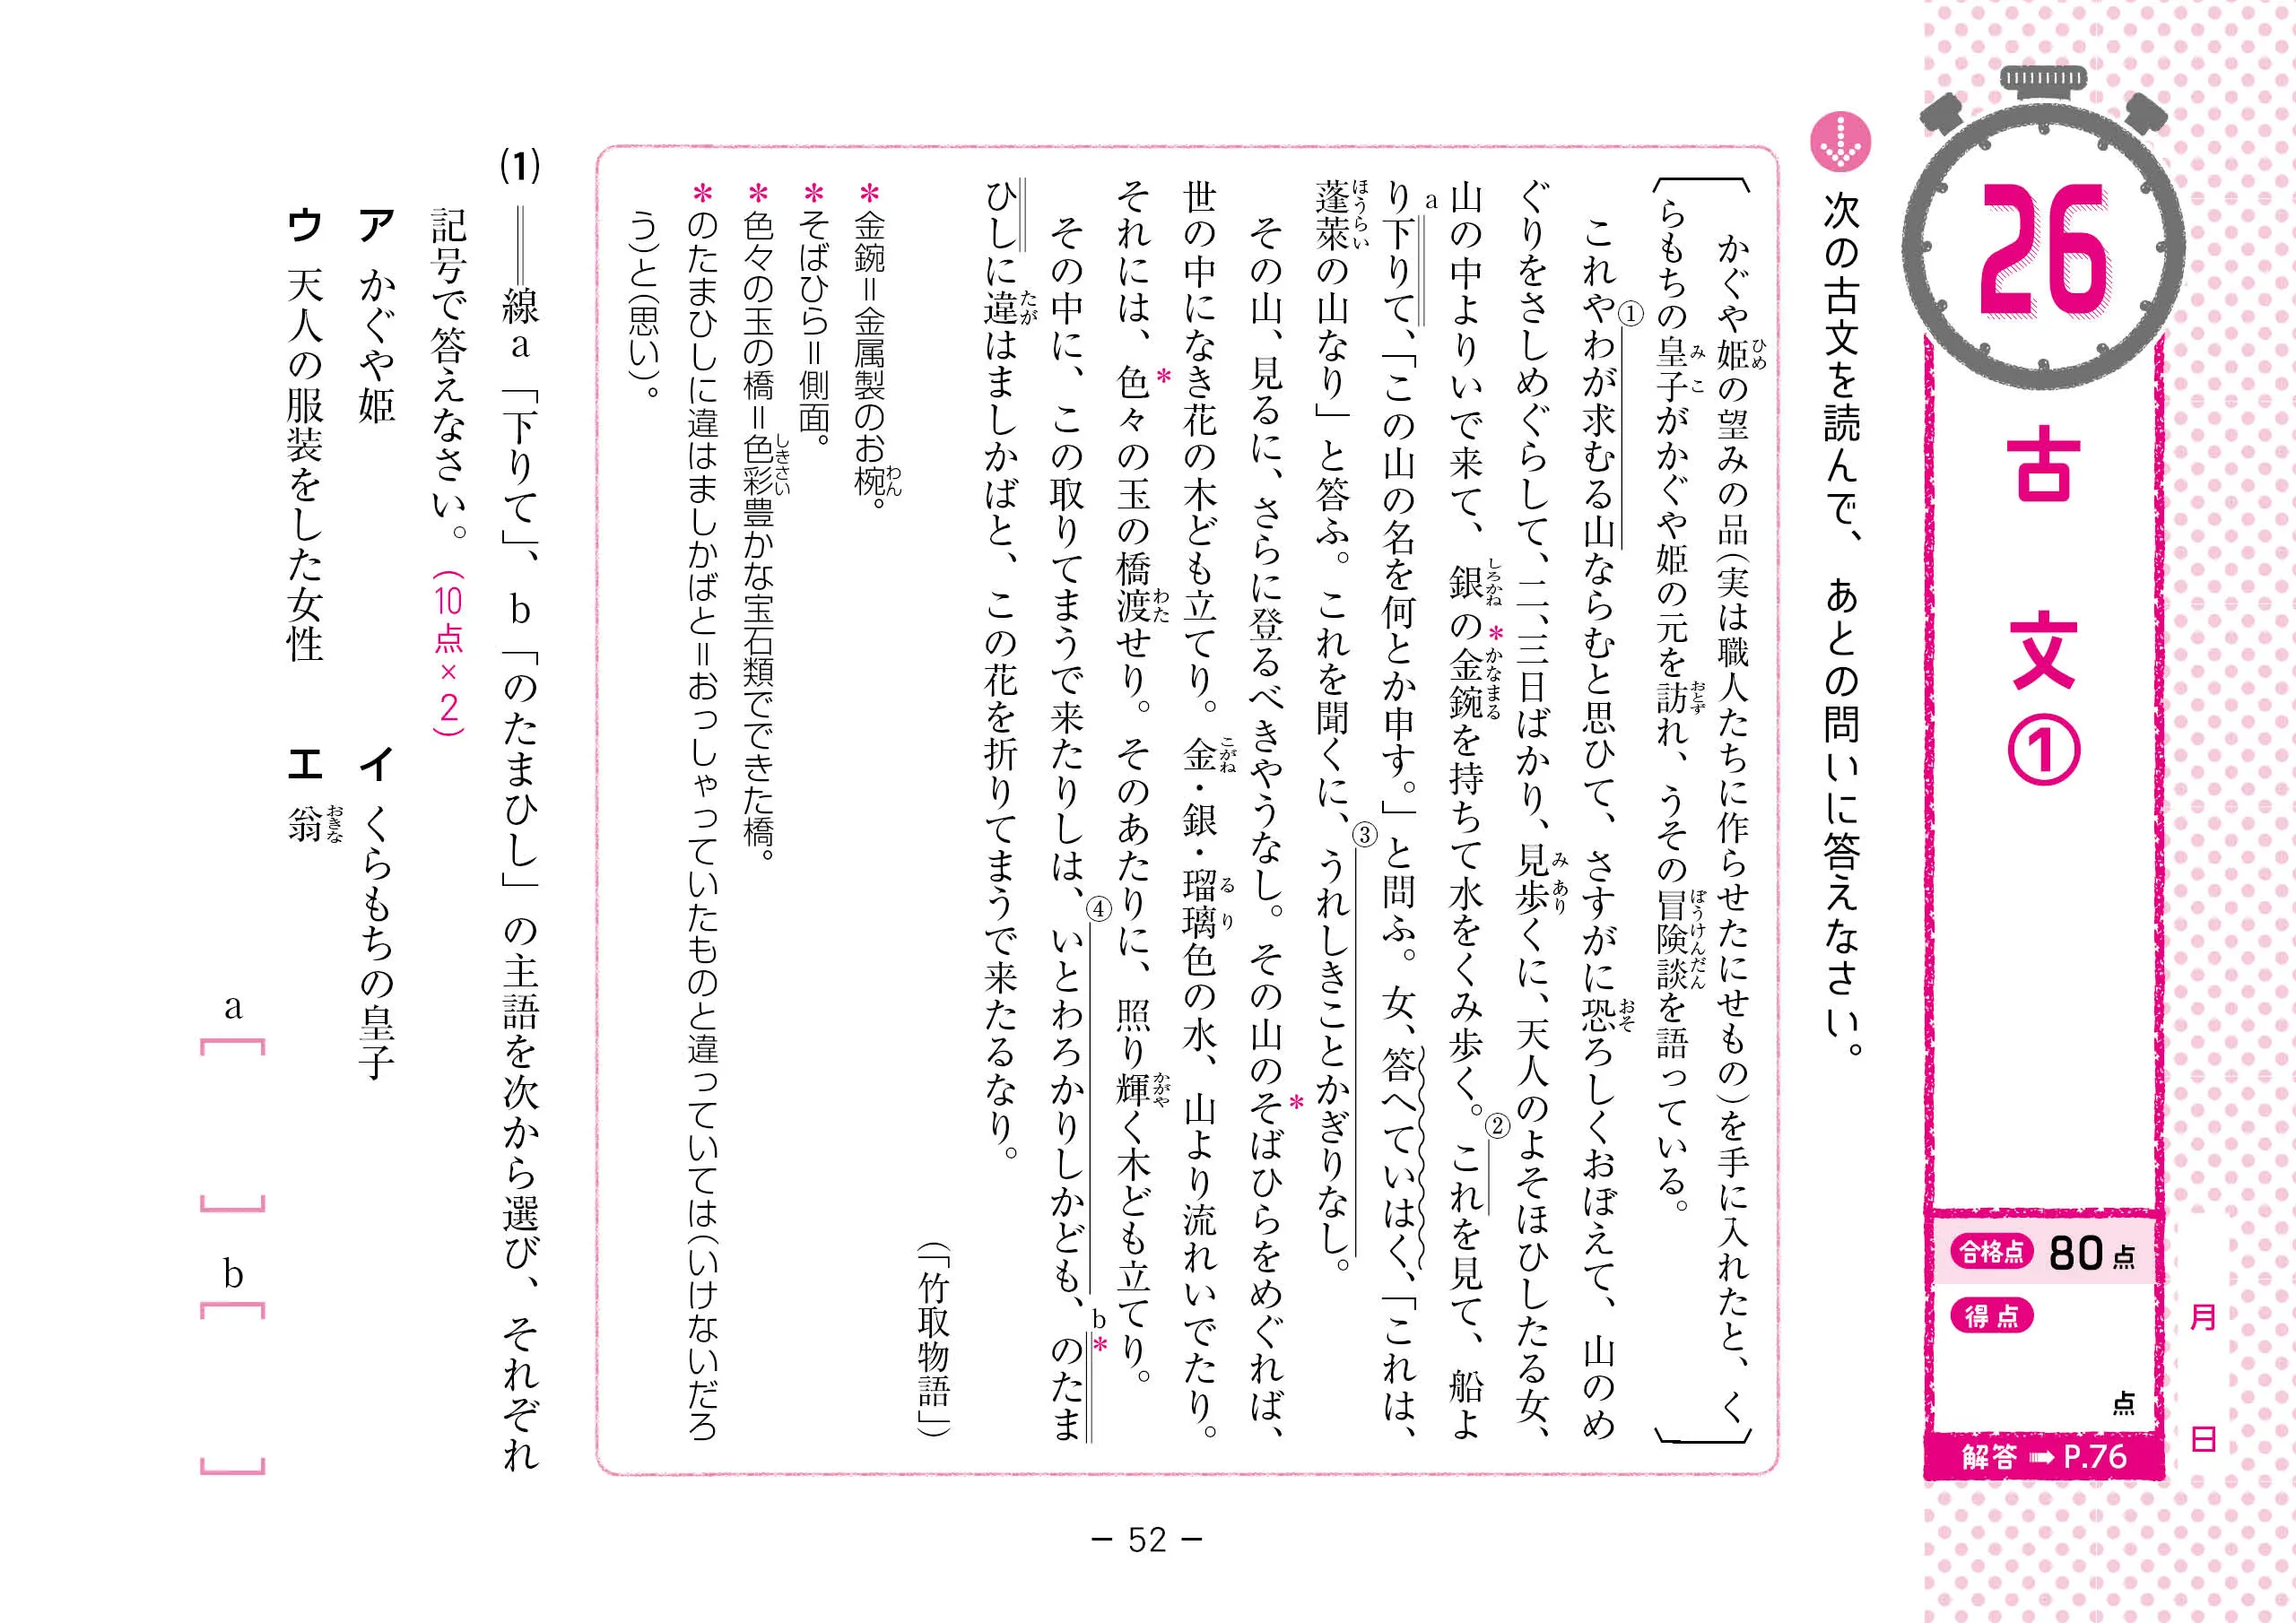 26
古文①
合格点 80点
得点
点
解答➡P.76
月 日
次の古文を読んで、あとの問いに答えなさい。
かぐや姫の望みの品(実は職人たちに作らせたにせもの)を手に入れたと、く
らもちの皇子がかぐや姫の元を訪れ、うその冒険談を語っている。
これや①わが求むる山ならむと思ひて、さすがに恐ろしくおぼえて、山のめ
ぐりをさしめぐらして、二、三日ばかり、見歩くに、天人のよそほひしたる女、
山の中よりいで来て、銀の*金鋺を持ちて水をくみ歩く。②これを見て、船よ
りa下りて、「この山の名を何とか申す。」と問ふ。女、答へていはく、「これは、
蓬萊の山なり」と答ふ。これを聞くに、③うれしきことかぎりなし。
その山、見るに、さらに登るべきやうなし。その山の*そばひらをめぐれば、
世の中になき花の木ども立てり。金・銀・瑠璃色の水、山より流れいでたり。
それには、*色々の玉の橋渡せり。そのあたりに、照り輝く木ども立てり。
その中に、この取りてまうで来たりしは、④いとわろかりしかども、b*のたま
ひしに違はましかばと、この花を折りてまうで来たるなり。
(「竹取物語」)
*金鋺=金属製のお椀。
*そばひら=側面。
*色々の玉の橋=色彩豊かな宝石類でできた橋。
*のたまひしに違はましかばと=おっしゃっていたものと違っていては(いけないだろ
う)と(思い)。
(1) ══線a「下りて」、b「のたまひし」の主語を次から選び、それぞれ
記号で答えなさい。(10点×2)
ア かぐや姫 イ くらもちの皇子
ウ 天人の服装をした女性 エ 翁
a[ ] b[ ]
− 52 −